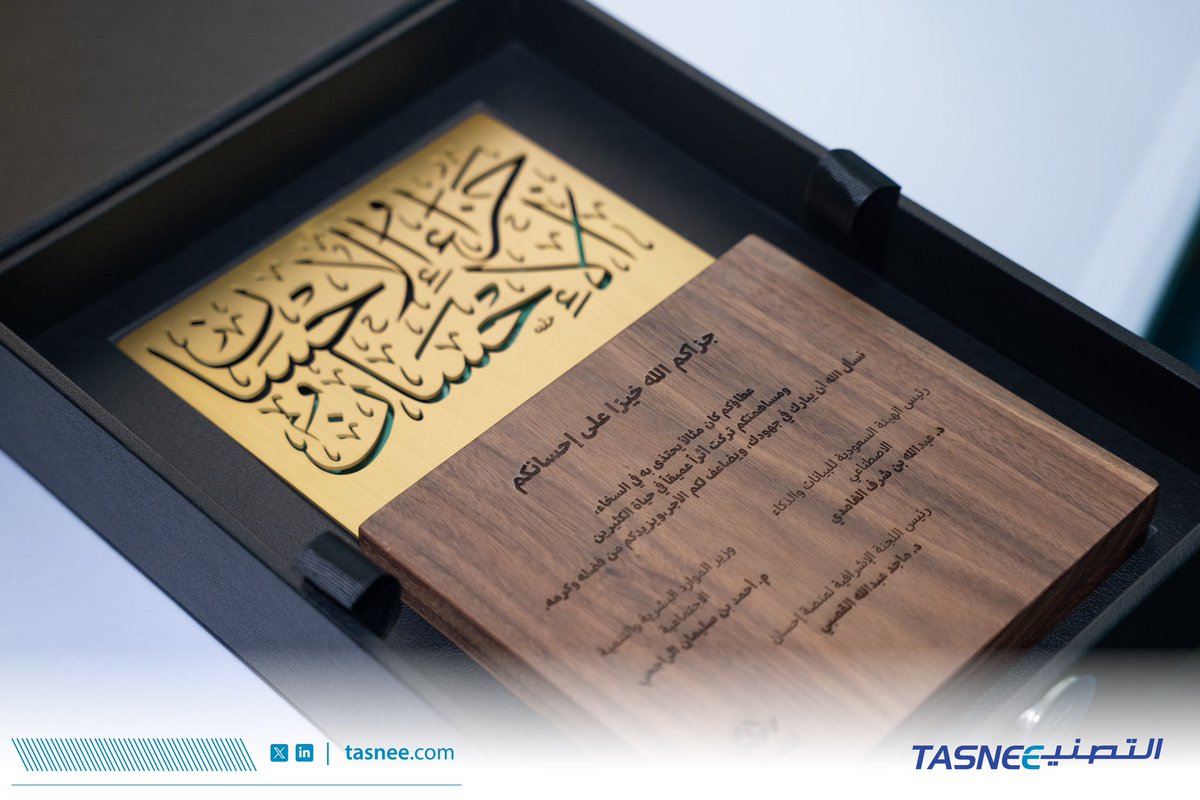 جزاء الإحسان
إلا الإحسان
جزاكم الله خيرًا على إحسانكم
عطاؤكم كان مثالاً يحتذى به في السخاء،
ومساهمتكم تركت أثراً عميقاً في حياة الكثيرين
نسأل الله أن يبارك في جهودك، ويضاعف لكم الأجر، ويزيدكم من فضله وكرمه.
رئيس الهيئة السعودية للبيانات والذكاء
الاصطناعي
د. عبدالله بن شرف الغامدي
وزير الموارد البشرية والتنمية
الاجتماعية
م. أحمد بن سليمان الراجحي
رئيس اللجنة الإشرافية لمنصة إحسان
د. ماجد عبدالله القصبي
tasnee.com
TASNEE التصنيع